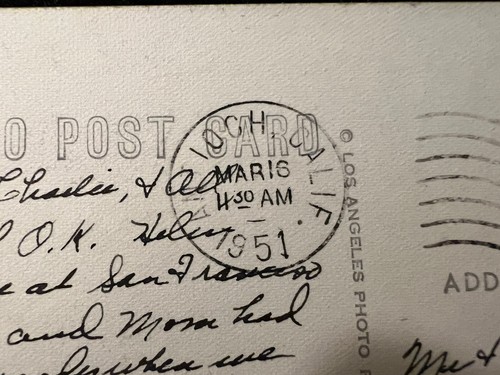 O POST CARD
ANTIOCH, CALIF.
MAR 16
11 30 AM
1951
Charlie, &
O.K. Helen
at San Francisco
and Mom had
when we
© LOS ANGELES PHOTO
ADD
Mr &